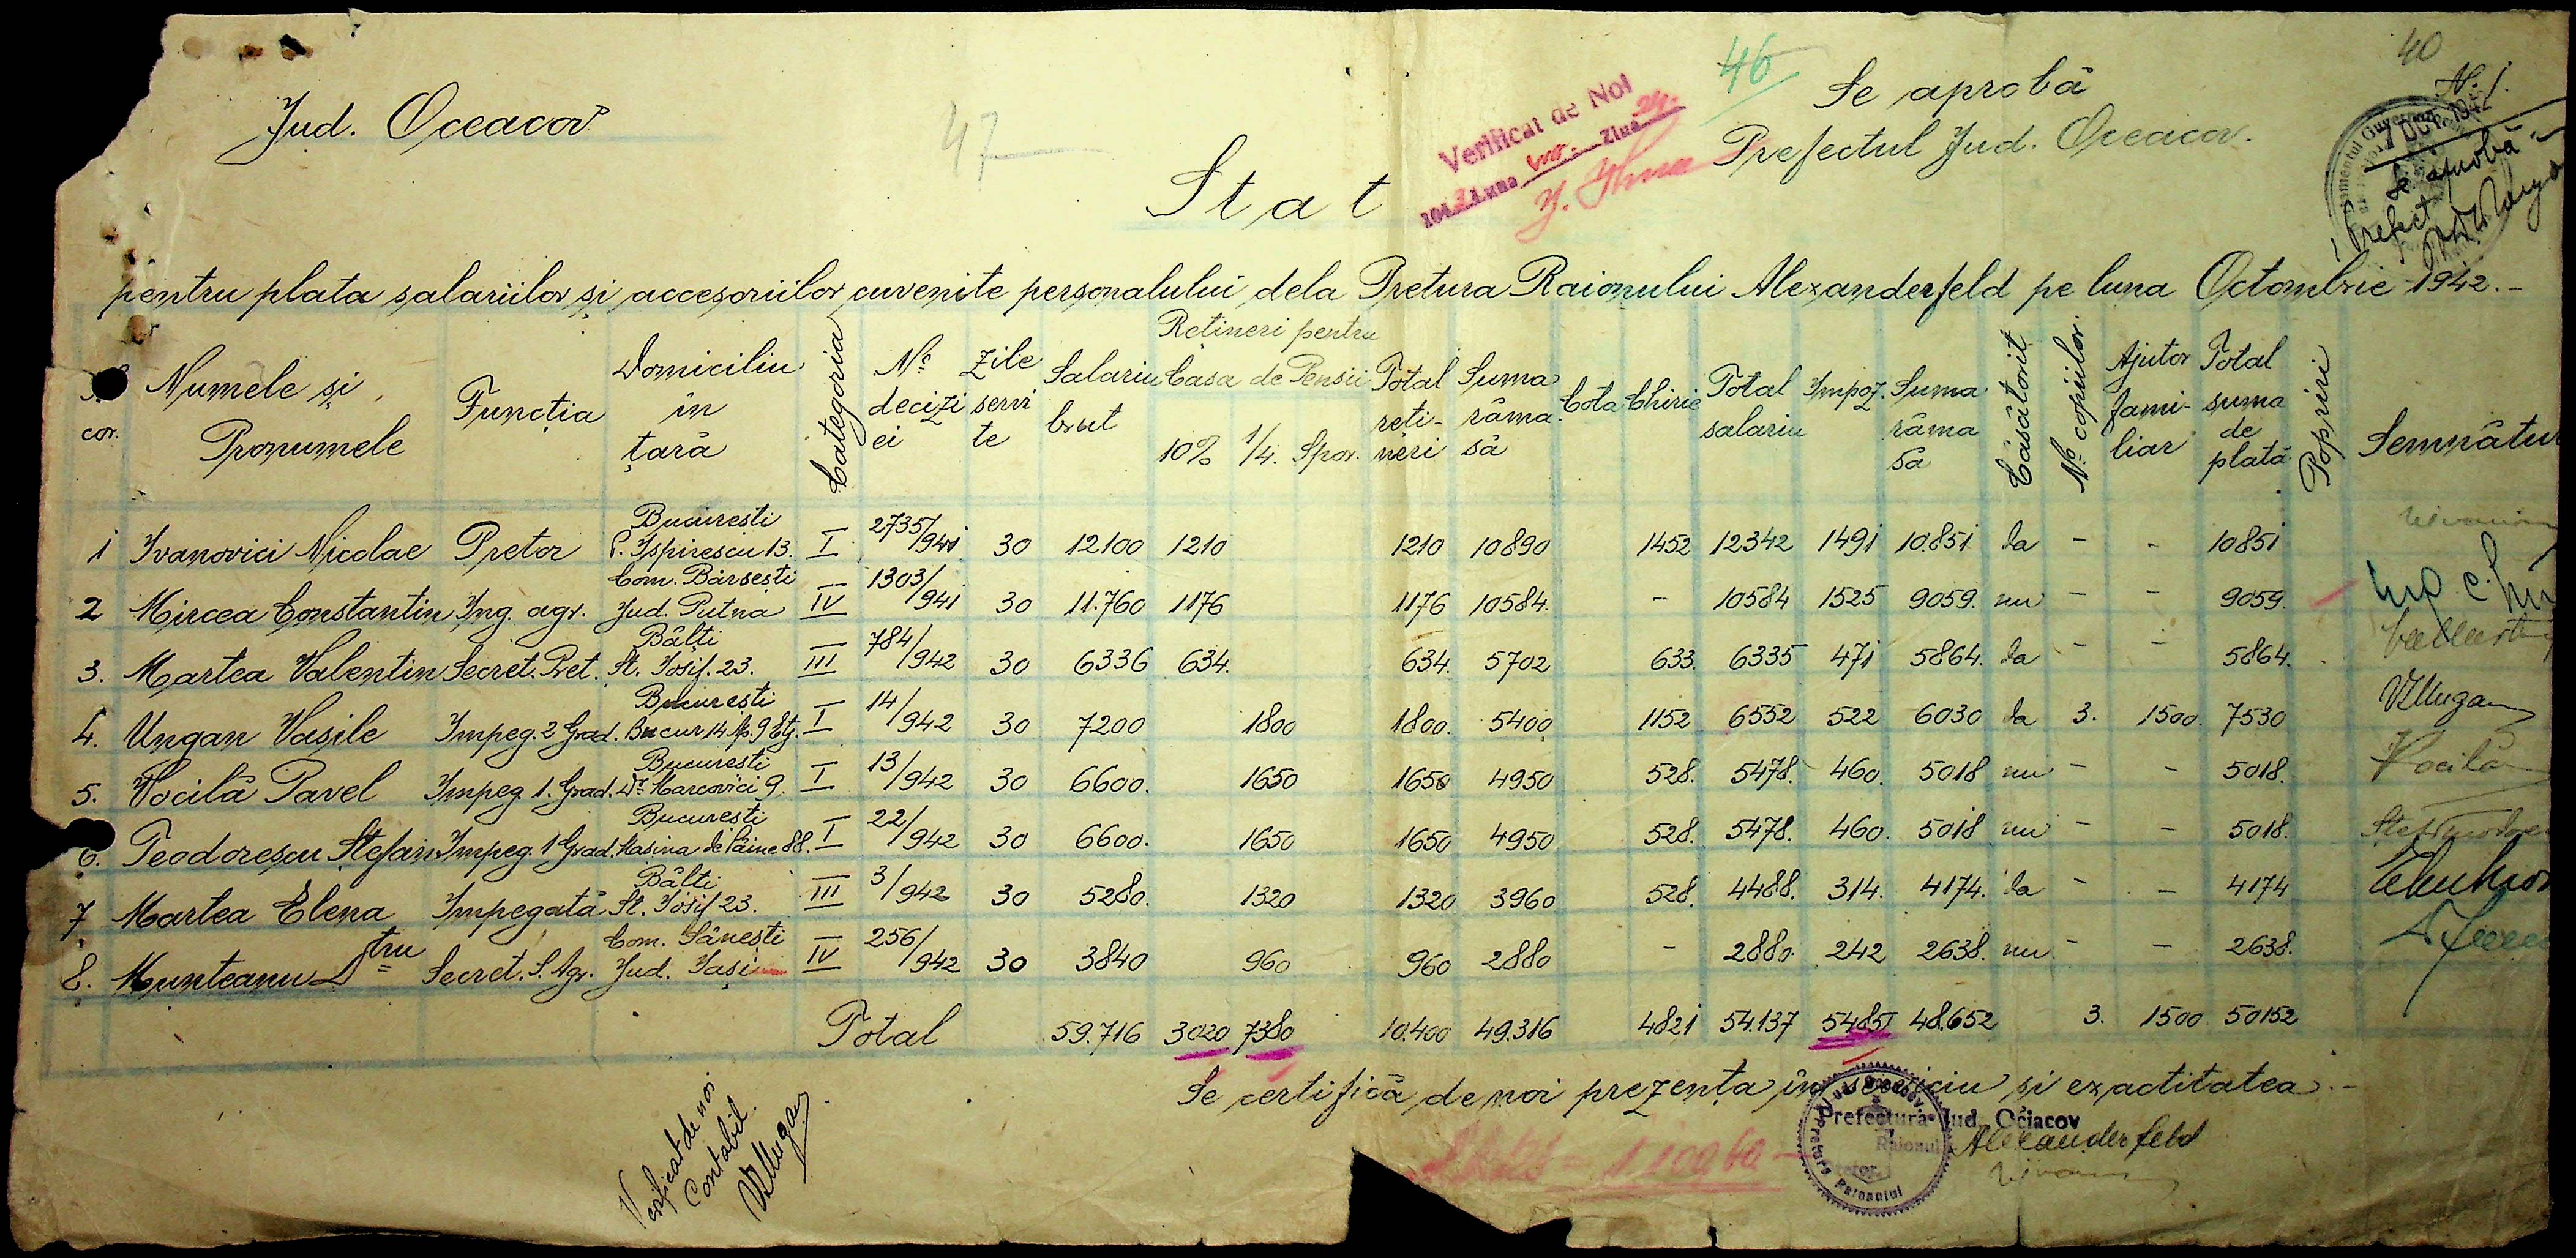 40
46
47
Jud. Oceacov
Se aprobă
Prefectul Jud. Oceacov.
Verificat de Noi
Luna Ziua
1 OCT. 1942
Se aprobă
Prefect
Stat
pentru plata salariilor și accesoriilor cuvenite personalului dela Pretura Raionului Alexanderfeld pe luna Octombrie 1942.-
cor. Numele și Pronumele Funcția Domiciliu în țară Categoria No deciziei Zile servite Salariu brut Rețineri pentru Casa de Pensii 10% 1/4. Spor. Total rețineri Suma rămasă Cota Chirie Total salariu Impoz. Suma rămasă Căsătorit No copiilor. Ajutor familiar Total suma de plată Popriri Semnătu
1 Ivanovici Nicolae Pretor București P. Ispirescu 13. I 2735/941 30 12.100 1210 1210 10890 1452 12342 1491 10.851 da - - 10851
2 Mircea Constantin Ing. agr. Com. Bârsești Jud. Putna IV 1303/941 30 11.760 1176 1176 10584. - 10584 1525 9059. nu - - 9059.
3. Martea Valentin Secret. Pret. Bălți St. Iosif. 23. III 784/942 30 6336 634. 634. 5702 633. 6335 471 5864. da - - 5864.
4. Ungan Vasile Impeg. 2 Grad. București Bucur 14 Ap. 9 Etj. I 14/942 30 7200 1800 1800. 5400 1152 6552 522 6030 da 3. 1500. 7530 VUngan
5. Vocilă Pavel Impeg 1. Grad. București Dr. Marcovici 9. I 13/942 30 6600. 1650 1650 4950 528. 5478. 460. 5018 nu - - 5018. Vocilă
6. Teodorescu Stefan Impeg. 1 Grad. București Mașina de Pâine 88. I 22/942 30 6600. 1650 1650 4950 528. 5478. 460. 5018 nu - - 5018.
7 Martea Elena Impegată Bălți St. Iosif 23. III 3/942 30 5280. 1320 1320 3960 528. 4488. 314. 4174. da - - 4174
8. Munteanu Dtru Secret. S. Agr. Com. Sănești Jud. Iași IV 256/942 30 3840 960 960 2880 - 2880. 242 2638. nu - - 2638.
Total 59.716 3020 7380 10.400 49.316 4821 54.137 5485 48.652 3. 1500 50152
Se certifică de noi prezența în serviciu și exactitatea.-
Prefectura Jud. Ociacov
Raionul Alexanderfeld
Pretor
Pretura Raionului
Verificat de noi
Contabil
VUngan